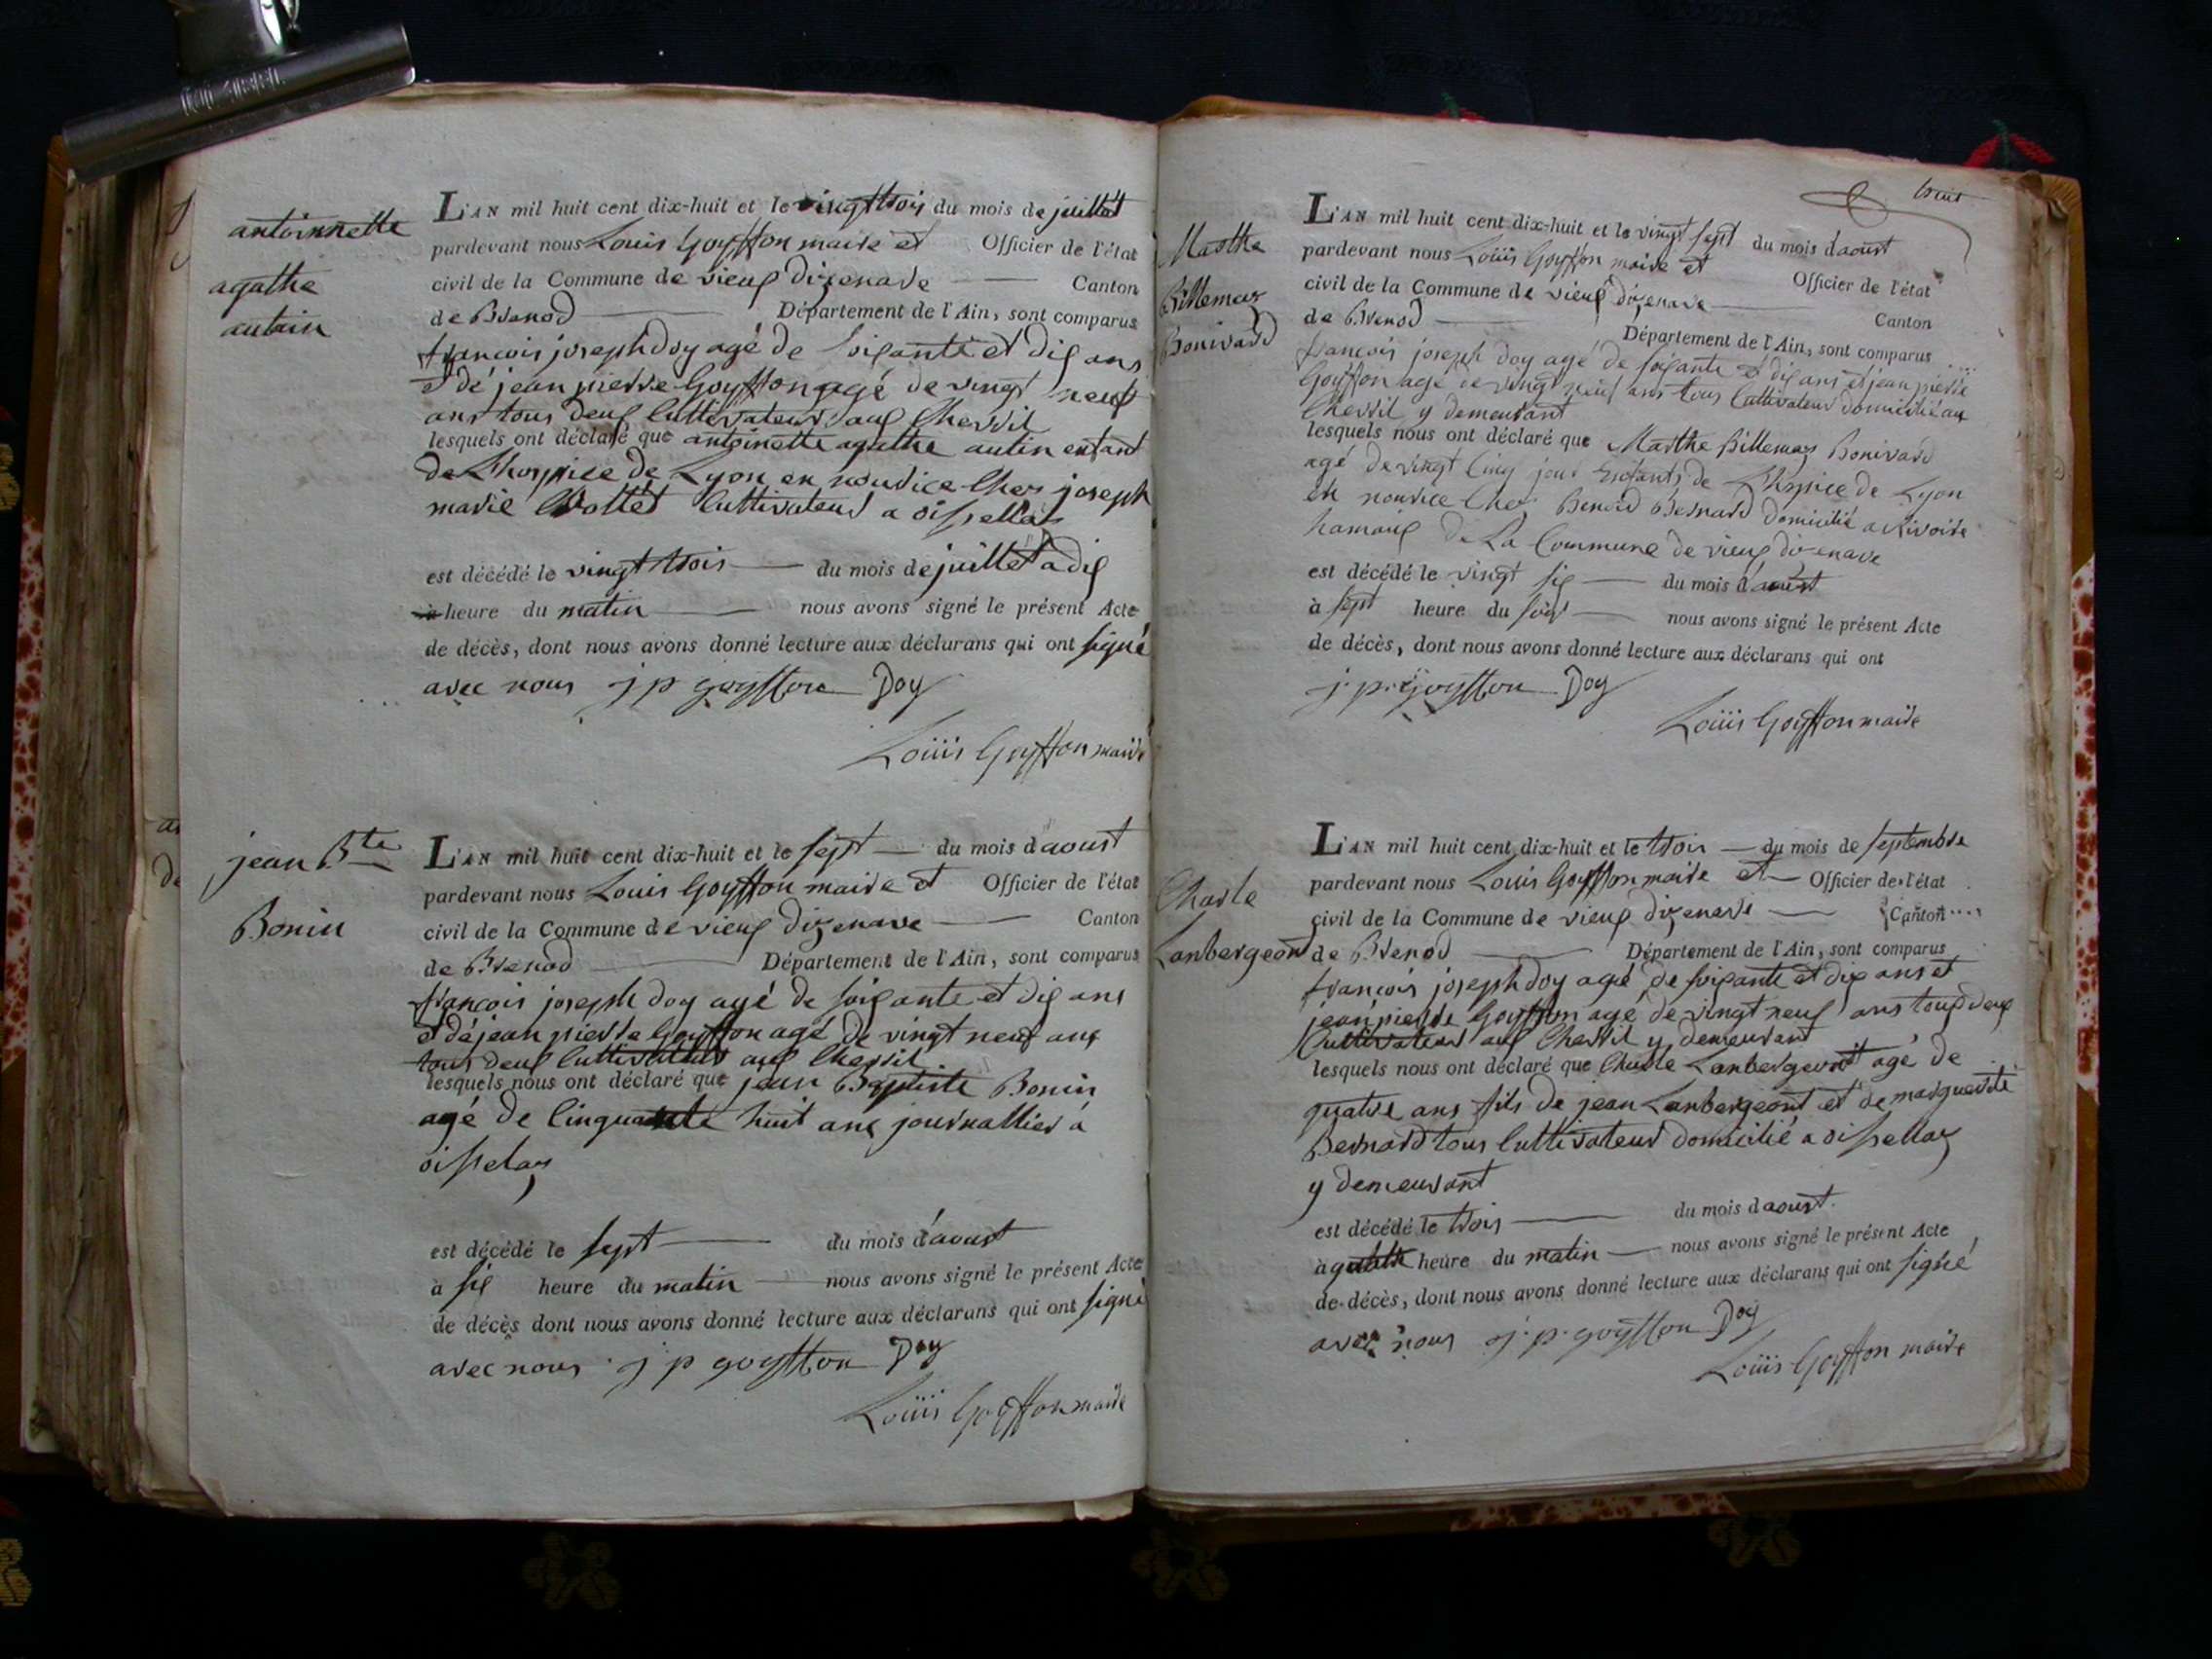 antoinnette
agathe
autain
L'AN mil huit cent dix-huit et le vingt trois du mois de juillet
pardevant nous Louis Goyffon maire et Officier de l'état
civil de la Commune de vieux dizenave Canton
de Brenod Département de l'Ain, sont comparus
francois joseph doy agé de soixante et dix ans
et dé jean pierre Goyffon agé de vingt neuf
ans tous deux Cultivateur aux Chevril
lesquels ont déclaré que antoinette agathe autin enfant
de L'hospice de Lyon en nourice Chez joseph
marie Cultivateur a oissellaz
est décédé le vingt trois du mois de juillet a dix
à heure du matin nous avons signé le présent Acte
de décès, dont nous avons donné lecture aux déclarans qui ont signé
avec nous j p goyffon Doy
Loüis Goyffon maire
jean Bte
Bonin
L'AN mil huit cent dix-huit et le sept du mois d'aoust
pardevant nous Louis Goyffon maire et Officier de l'état
civil de la Commune de vieux dizenave Canton
de Brenod Département de l'Ain, sont comparus
francois joseph doy agé de soixante et dix ans
et dé jean pierre Goyffon agé de vingt neuf ans
tous deux Cultivateur aux Chevril
lesquels nous ont déclaré que jean Baptiste Bonin
agé de Cinquante huit ans journallier à
oisselaz
est décédé le sept du mois d'aoust
à six heure du matin nous avons signé le présent Acte
de décès dont nous avons donné lecture aux déclarans qui ont signé
avec nous j p goyffon Doy
Loüis Goyffon maire
huit
Marthe
Billemaz
Bonivard
L'AN mil huit cent dix-huit et le vingt sept du mois d'aoust
pardevant nous Loüis Goyffon maire et Officier de l'état
civil de la Commune de vieux dizenave Canton
de Brenod Département de l'Ain, sont comparus
francois joseph doy agé de soixante et dix ans et jean pierre
Goyffon agé de vingt neuf ans tous Cultivateur domicilié au
Chevril y demeurant
lesquels nous ont déclaré que Marthe Billemaz Bonivard
agé de vingt Cinq jour Enfants de L'hospice de Lyon
en nourice Chez Benoid Bernard domicilié a Rivoire
hamaux de La Commune de vieux dizenave
est décédé le vingt six du mois d'aoust
à sept heure du soir nous avons signé le présent Acte
de décès, dont nous avons donné lecture aux déclarans qui ont
j. p. Goyffon Doy
Loüis Goyffon maire
Charle
Lanbergeont
L'AN mil huit cent dix-huit et le trois du mois de septembre
pardevant nous Louis Goyffon maire et Officier de l'état
civil de la Commune de vieux dizenave Canton
de Brenod Département de l'Ain, sont comparus
francois joseph doy agé de soixante et dix ans et
jean pierre Goyffon agé de vingt neuf ans tous deux
Cultivateur aux Chevril y demeurant
lesquels nous ont déclaré que Charle Lanbergeont agé de
quatre ans fils de jean Lanbergeont et de marguerite
Bernard tous Cultivateur domicilié a oissellaz
y demeurant
est décédé le trois du mois d'aoust.
à quatre heure du matin nous avons signé le présent Acte
de décès, dont nous avons donné lecture aux déclarans qui ont signé
avec nous j. p. goyffon Doy
Loüis Goyffon maire